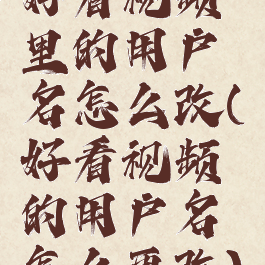 好看视频
里的用户
名怎么改(
好看视频
的用户名
怎么更改)